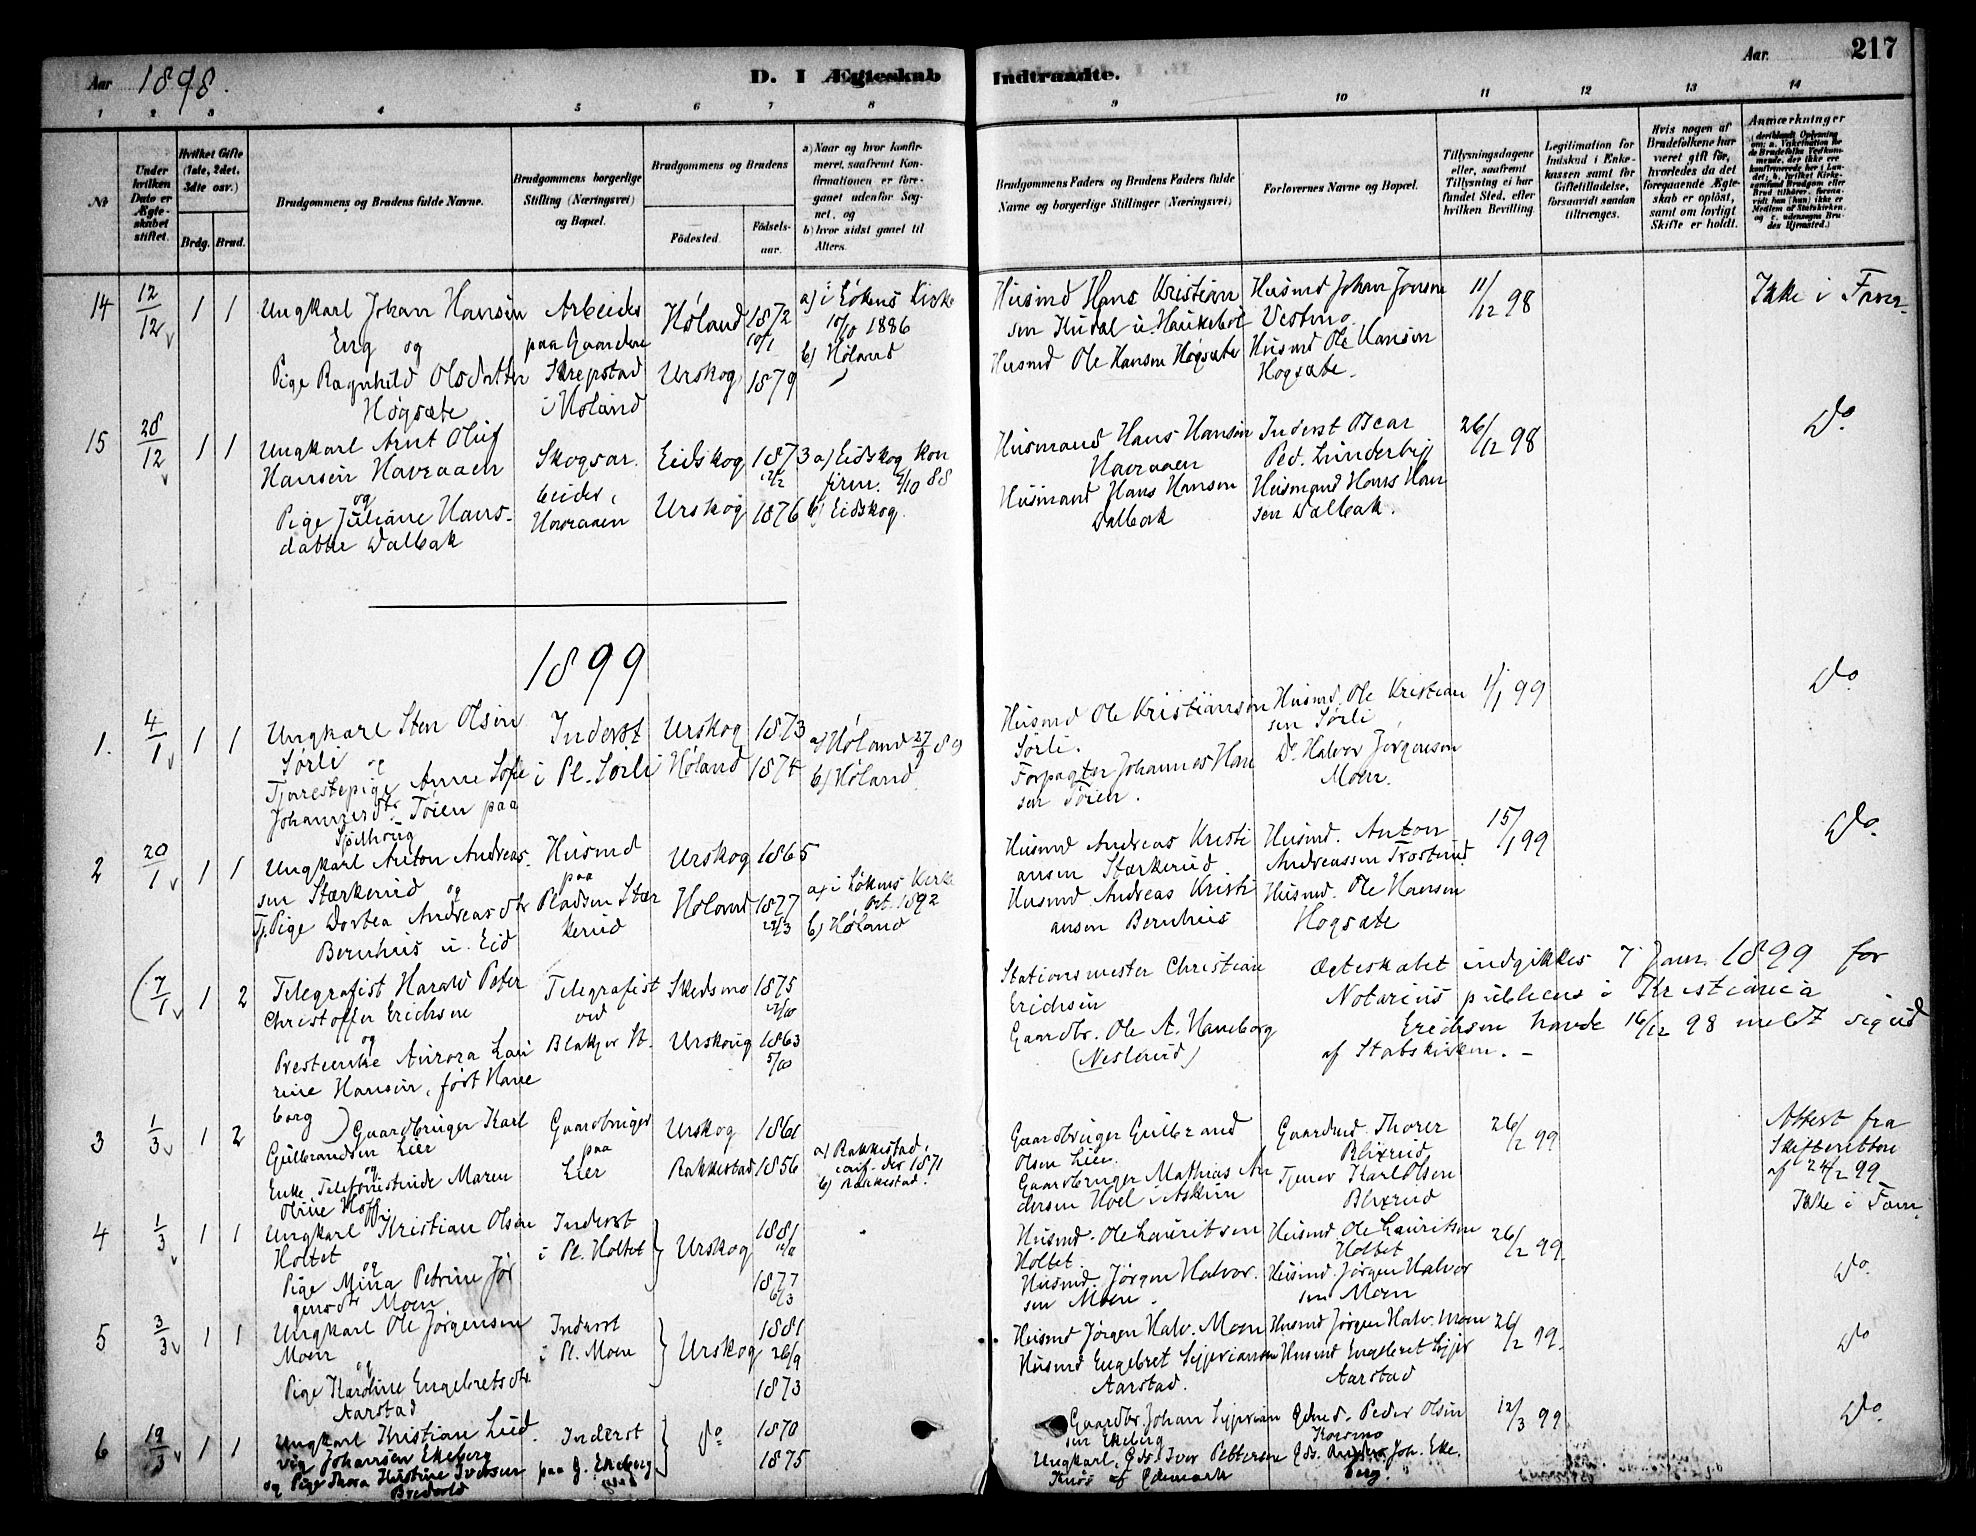 Aar 1898.
D. I Ægteskab Indtraadte.
Aar. 217
1 2 3 4 5 6 7 8 9 10 11 12 13 14
№
Under hvilken Dato er Ægteskabet stiftet.
Hvilket Gifte (1ste, 2det, 3dte osv.)
Brdg. Brud.
Brudgommens og Brudens fulde Navne.
Brudgommens borgerlige Stilling (Næringsvei) og Bopæl.
Brudgommens og Brudens
Födested. Födselsaar.
a) Naar og hvor konfirmeret, saafremt Konfirmationen er foregaaet udenfor Sognet, og
b) hvor sidst gaaet til Alters.
Brudgommens Faders og Brudens Faders fulde Navne og borgerlige Stillinger (Næringsvei)
Forlovernes Navne og Bopæl.
Tillysningsdagene eller, saafremt Tillysning ei har fundet Sted, efter hvilken Bevilling.
Legitimation for Indskud i Enkekassen samt for Giftetilladelse, forsaavidt saadan tiltrænges.
Hvis nogen af Brudefolkene har været gift før, hvorledes da det foregaaende Ægteskab er opløst, samt om lovligt Skifte er holdt.
Anmærkninger
14 12/12 1 1
Ungkarl Johan Hansen
Eng og
Pige Ragnhild Olsdatter
Høgsæte
Arbeider
paa Gaarden
Skrepstad
i Høland
Høland 1872
10/1
Urskog 1879
a) i Løkens Kirke
10/10 1886
b) Høland
Husmd Hans Kristian
sen
Husmd Ole Hansen Høgsæte
Husmd Johan Jonsen
Vestmo
Husmd Ole Hansen
Høgsæte.
11/12 98
Ikke i Fam.
15 28/12 1 1
Ungkarl Arnt Oluf
Hansen Havraaen
og
Pige Juliane Hans-
datter Dalbak
Skogsar.
beider,
Havraaen
Eidskog 1873
12/2
Urskog 1876
a) Eidskog Kon
firm. 7/10 88
b) Eidskog.
Husmand Hans Hansen
Havraaen
Husmand Hans Hansen
Dalbak
Inderst Oscar
Ped. Linderby
Husmand Hans Han
sen Dalbak.
26/12 98
Do.
1899
1. 4/1 1 1
Ungkarl Sten Olsen
Sørli og
Tjenestepige Anne Sofie
Johannesdtr. Tøien paa
Sjølhoug
Inderst
i Pl. Sørli
Urskog 1873
Høland 1874
a) Høland 27/9 89
b) Høland.
Husmd Ole Kristiansen
Sørli.
Forpagter Johannes Han
sen Tøien.
Husmd. Ole Kristian
sen Sørli
Do. Halvor Jørgensen
Moen.
1/1 99
Do.
2 20/1 1 1
Ungkarl Anton Andreas-
sen Stærkerud og
Tj. Pige Dortea Andreasdtr
Bernhus u. Eid
Husmd
paa
Pladsen Stær
kerud
Urskog 1865
Høland 1877
22/3
a) i Løkens Kirke
Okt. 1892
b) Høland
Husmd Andreas Kristi
ansen Stærkerud
Husmd Andreas Kristi
ansen Bernhus
Husmd. Anton
Andreassen Trosterud
Husmd. Ole Hansen
Høgsæte
15/1 99
Do.
(7/1 1 2
Telegrafist Harald Peter
Christoffer Erichsen
og
Presteenke Aurora Lau
rine Hansen, født Hane
borg)
Telegrafist
ved
Blakjer St.
Skedsmo 1875
Urskoug 1863
Stationsmester Christian
Erichsen
Gaardbr. Ole A. Haneborg
(Neslund)
Ægteskabet indgikkes 7 Janr. 1899 for
Notarius publicus i Kristiania
Erichsen havde 16/12 98 meldt sig ud
af Statskirken. –
3 1/3 1 2
Gaardbruger Karl
Gulbrandsen Lier
og
Enke, Telefonistinde Maren
Oline Hoff.
Gaardbruger
paa
Lier
Urskog 1861
Rakkestad 1856
a) Rakkestad,
conf. der 1871
b) Rakkestad.
Gaardbruger Gulbrand
Olsen Lier
Gaardbruger Mathias An
dersen Hoel i Askim
Gaardmd. Thorer
Blixrud
Tjener Karl Olsen
Blixrud
26/2 99
Attest fra
Skifteretten
af 24/2 99
Ikke i Fam.
4 1/3 1 1
Ungkarl Kristian Olsen
Holtet og
Pige Mina Petrine Jør
gensdtr. Moen
Inderst
i Pl. Holtet
Urskog
1881
1877
6/3
Husmd. Ole Lauritsen
Holtet.
Husmd. Jørgen Halvor.
sen Moen.
Husmd Ole Lauritsen
Holtet
Husmd. Jørgen Halvor
sen Moen
26/2 99.
Do.
5 3/3 1 1
Ungkarl Ole Jørgensen
Moen og
Pige Karoline Engebretsdtr.
Aarstad
Inderst
i Pl. Moen
Urskog
1881
26/9
1873
Husmd Jørgen Halv. Moen
Husmd Engebret Syversen
Aarstad.
Husmd Jørgen Halv. Moen
Husmd Engebret Syver
Aarstad
26/2 99.
Do
6 19/3 1 1
Ungkarl Kristian Lud.
vig Johansen Ekeberg
og Pige Thora Kristine Iversen
Bredvold
Inderst
paa G. Ekeberg
Do
1870
1875
Gaardbr. Johan Syversen
sen Ekeberg
Ungkarl, Gds. Iver Pettersen
Peder Olsen
Kosmo
Joh. Eke.
berg.
12/3 99
Do.